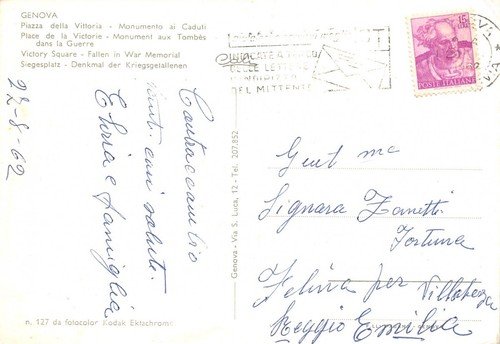 GENOVA
Piazza della Vittoria - Monumento ai Caduti
Place de la Victorie - Monument aux Tombés
dans la Guerre
Victory Square - Fallen in War Memorial
Siegesplatz - Denkmal der Kriegsgefallenen
22-8-62
Contraccambio
cari saluti.
Elvira e famiglia
n. 127 da fotocolor Kodak Ektachrome
Genova - Via S. Luca, 12 - Tel. 207.852
INDICATE
DEL MITTENTE
15
POSTE ITALIANE
Gent ma
Signora Zanetti
Fortuna
Felina per Villaberza
Reggio Emilia